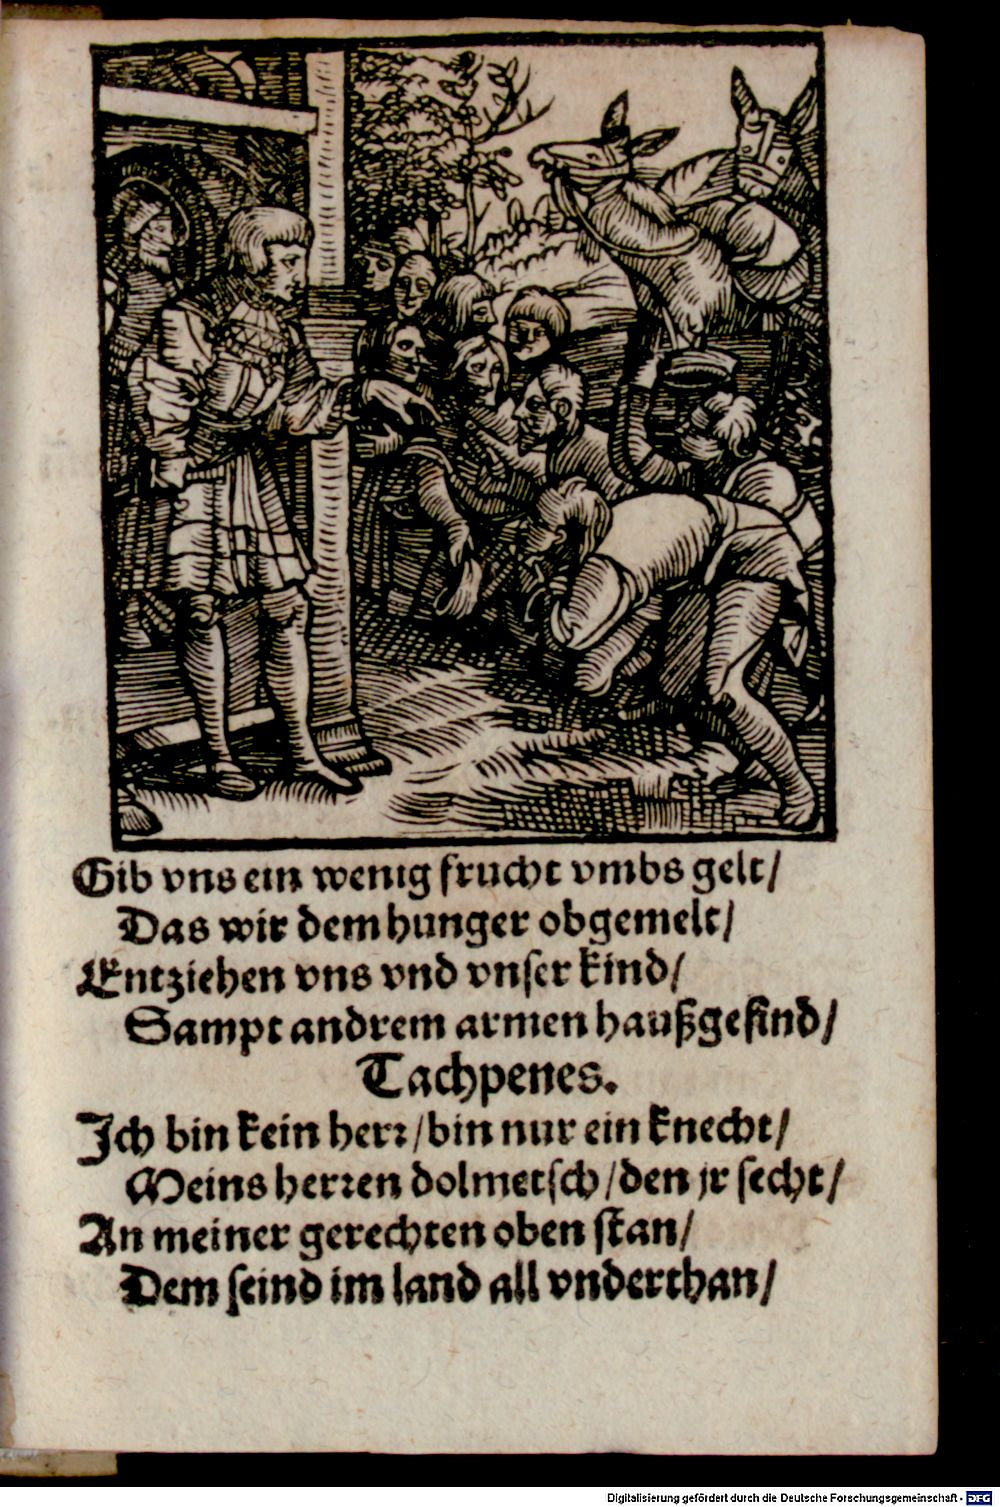 Gib vns ein wenig frucht vmbs gelt/
Das wir dem hunger obgemelt/
Entziehen vns vnd vnser kind/
Sampt andrem armen haußgesind/
Tachpenes.
Ich bin kein herꝛ/bin nur ein knecht/
Meins herꝛen dolmetsch/den jr secht/
An meiner gerechten oben stan/
Dem seind im land all vnderthan/
Digitalisierung gefördert durch die Deutsche Forschungsgemeinschaft - DFG